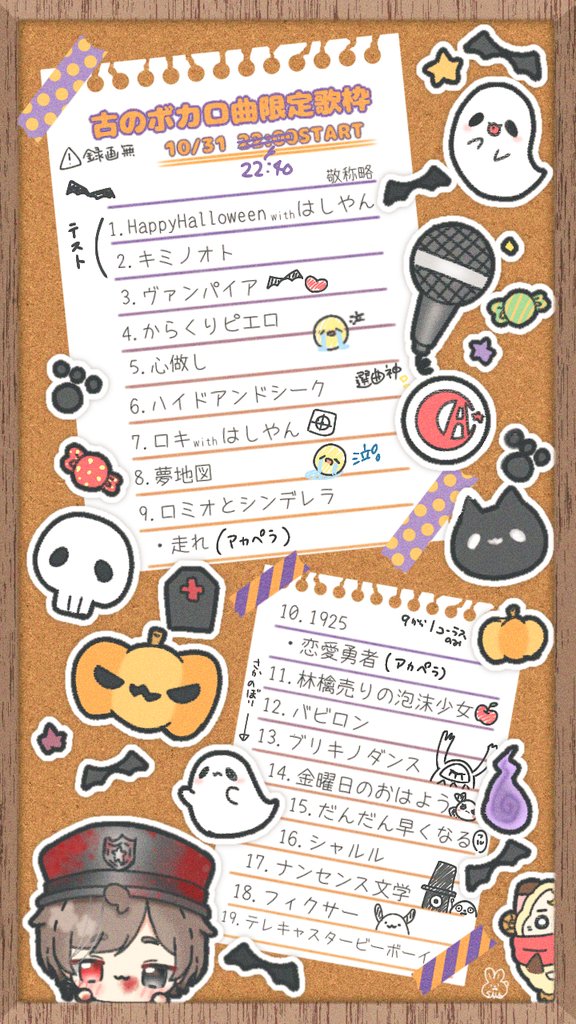 古のボカロ曲限定歌枠
10/31 22:00START
22:40
録画無
敬称略
テスト
1.HappyHalloween withはしやん
2.キミノオト
3.ヴァンパイア
4.からくりピエロ 泣
5.心做し
6.ハイドアンドシーク 選曲神
7.ロキwithはしやん
8.夢地図 泣。
9.ロミオとシンデレラ
・走れ(アカペラ)
10.1925
・恋愛勇者(アカペラ)
さかのぼり
11.林檎売りの泡沫少女
12.バビロン
13.ブリキノダンス
14.金曜日のおはよう
15.だんだん早くなる
16.シャルル
17.ナンセンス文学
18.フィクサー
19.テレキャスタービーボーイ